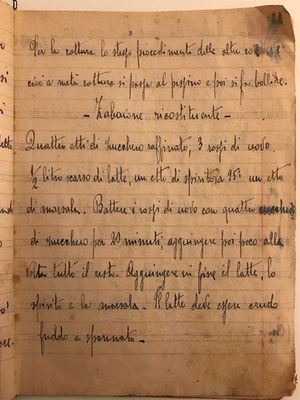 Per la cottura lo stesso procedimento delle altre
cioè a metà cottura si passa al passino e poi si fa bollire.
- Zabaione ricostituente -
Quattro etti di zucchero raffinato, 3 rossi di uovo.
1/2 litro scarso di latte, un etto di spirito a 95° un etto
di marsala. Battere i rossi di uovo con quattro cucchiai
di zucchero per 20 minuti, aggiungere poi poco alla
volta tutto il resto. Aggiungere in fine il latte, lo
spirito e la marsala. Il latte deve essere crudo
freddo e spannato -